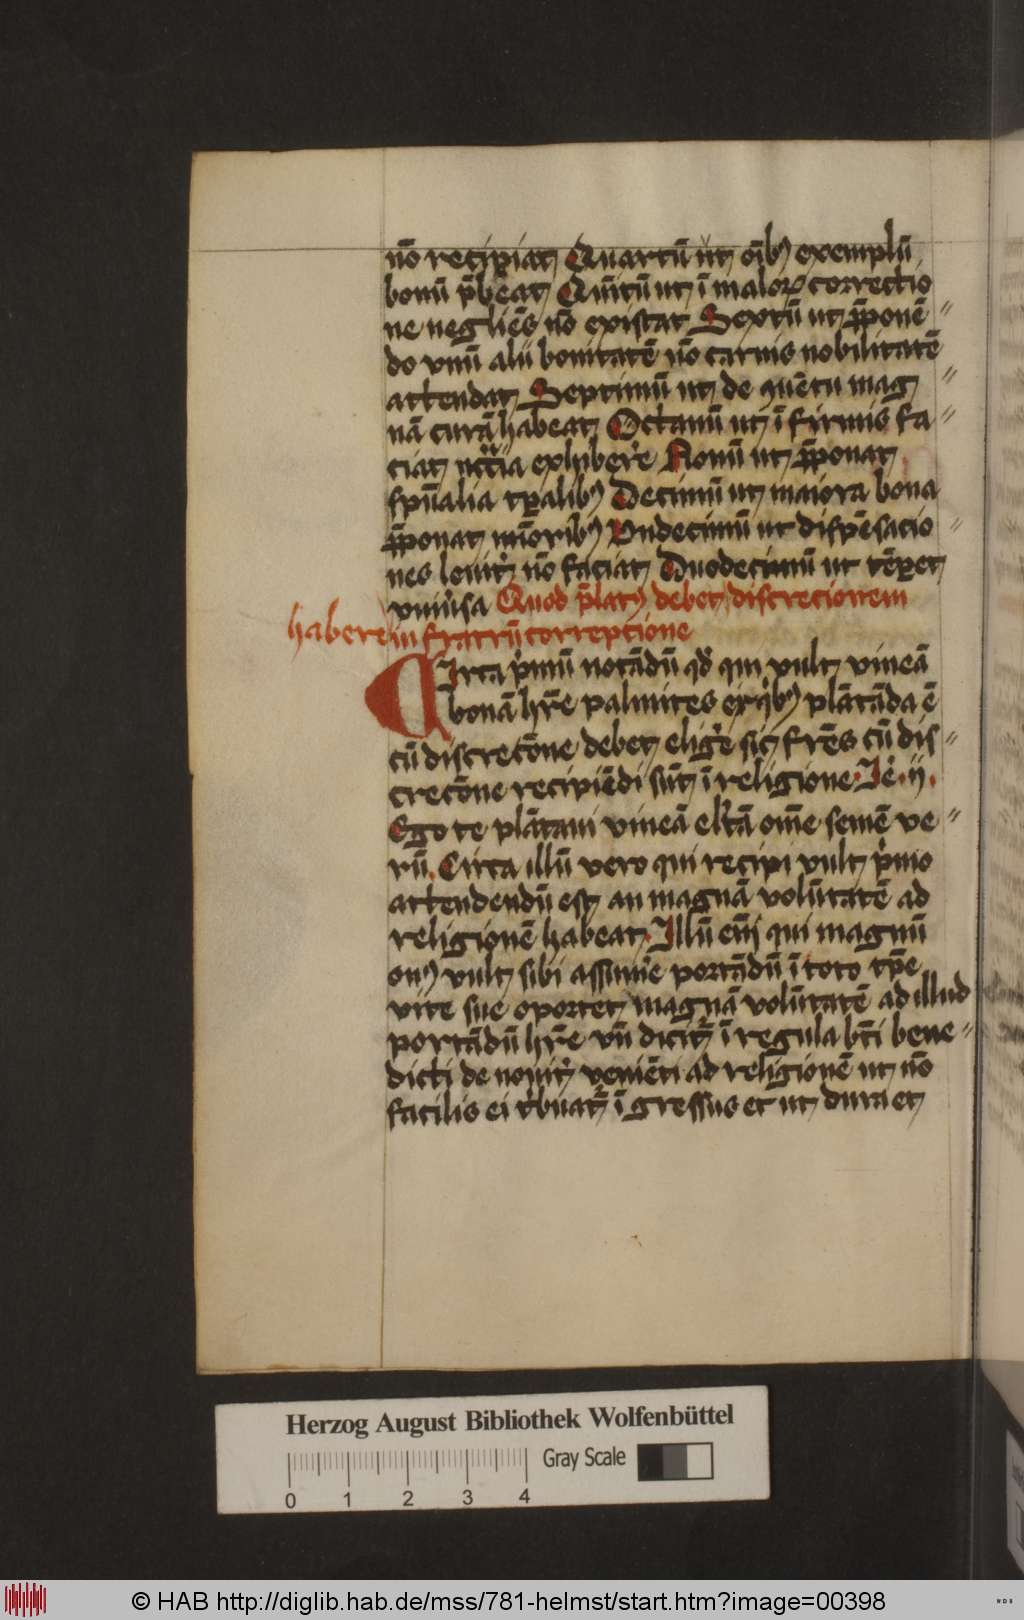 nō recipiat Quartū ut oībꝰ exemplū
bonū p̄beat Quītū ut ī maloꝝ correctio
ne negliēs nō existat Sextū ut p̄ponē
do vnū alii bonitatē nō carnis nobilitatē
attendat Septimū ut de ꝯuētu mag
nā curā habeat Octauū ut ī firmis fa
ciat exhiberͥ Nonū ut p̄ponat
spūalia tꝑalibꝰ Decimū ut maiora bona
p̄ponat mīoribꝰ Vndecimū ut dispēsacio
nes leuitͥ nō faciat Duodecimū ut tēꝑet
vniūsa Quod p̄latꝰ debet discrecionem
habere in fratrū correptione
Circa pͥmū notādū qđ qui vult vineā
bonā hr̄e palmites ex qͥbꝰ plātāda ē
cū discretōne debet eligͤe sic frēs cū dis
cretōne recipiēdi sūt ī religione Jē ij
Ego te plātaui vineā elc̄tā om̄e semē ve
rū Circa illū vero qui recipi vult pͥmo
attendendū est an magnā volūtatē ad
religionē habeat Illū eīm qui magnū
onꝰ vult sibi assumͤe portādū ī toto tꝑe
vite sue oportet magnā volūtatē ad illud
portādū hr̄e vn̄ dicitͬ ī regula bt̄i bene
dicti de nouitͥ veniēti ad religionē ut nō
facilis ei tͥbuatͬ īgressus et ut dura et
Herzog August Bibliothek Wolfenbüttel
Gray Scale
0 1 2 3 4
© HAB http://diglib.hab.de/mss/781-helmst/start.htm?image=00398